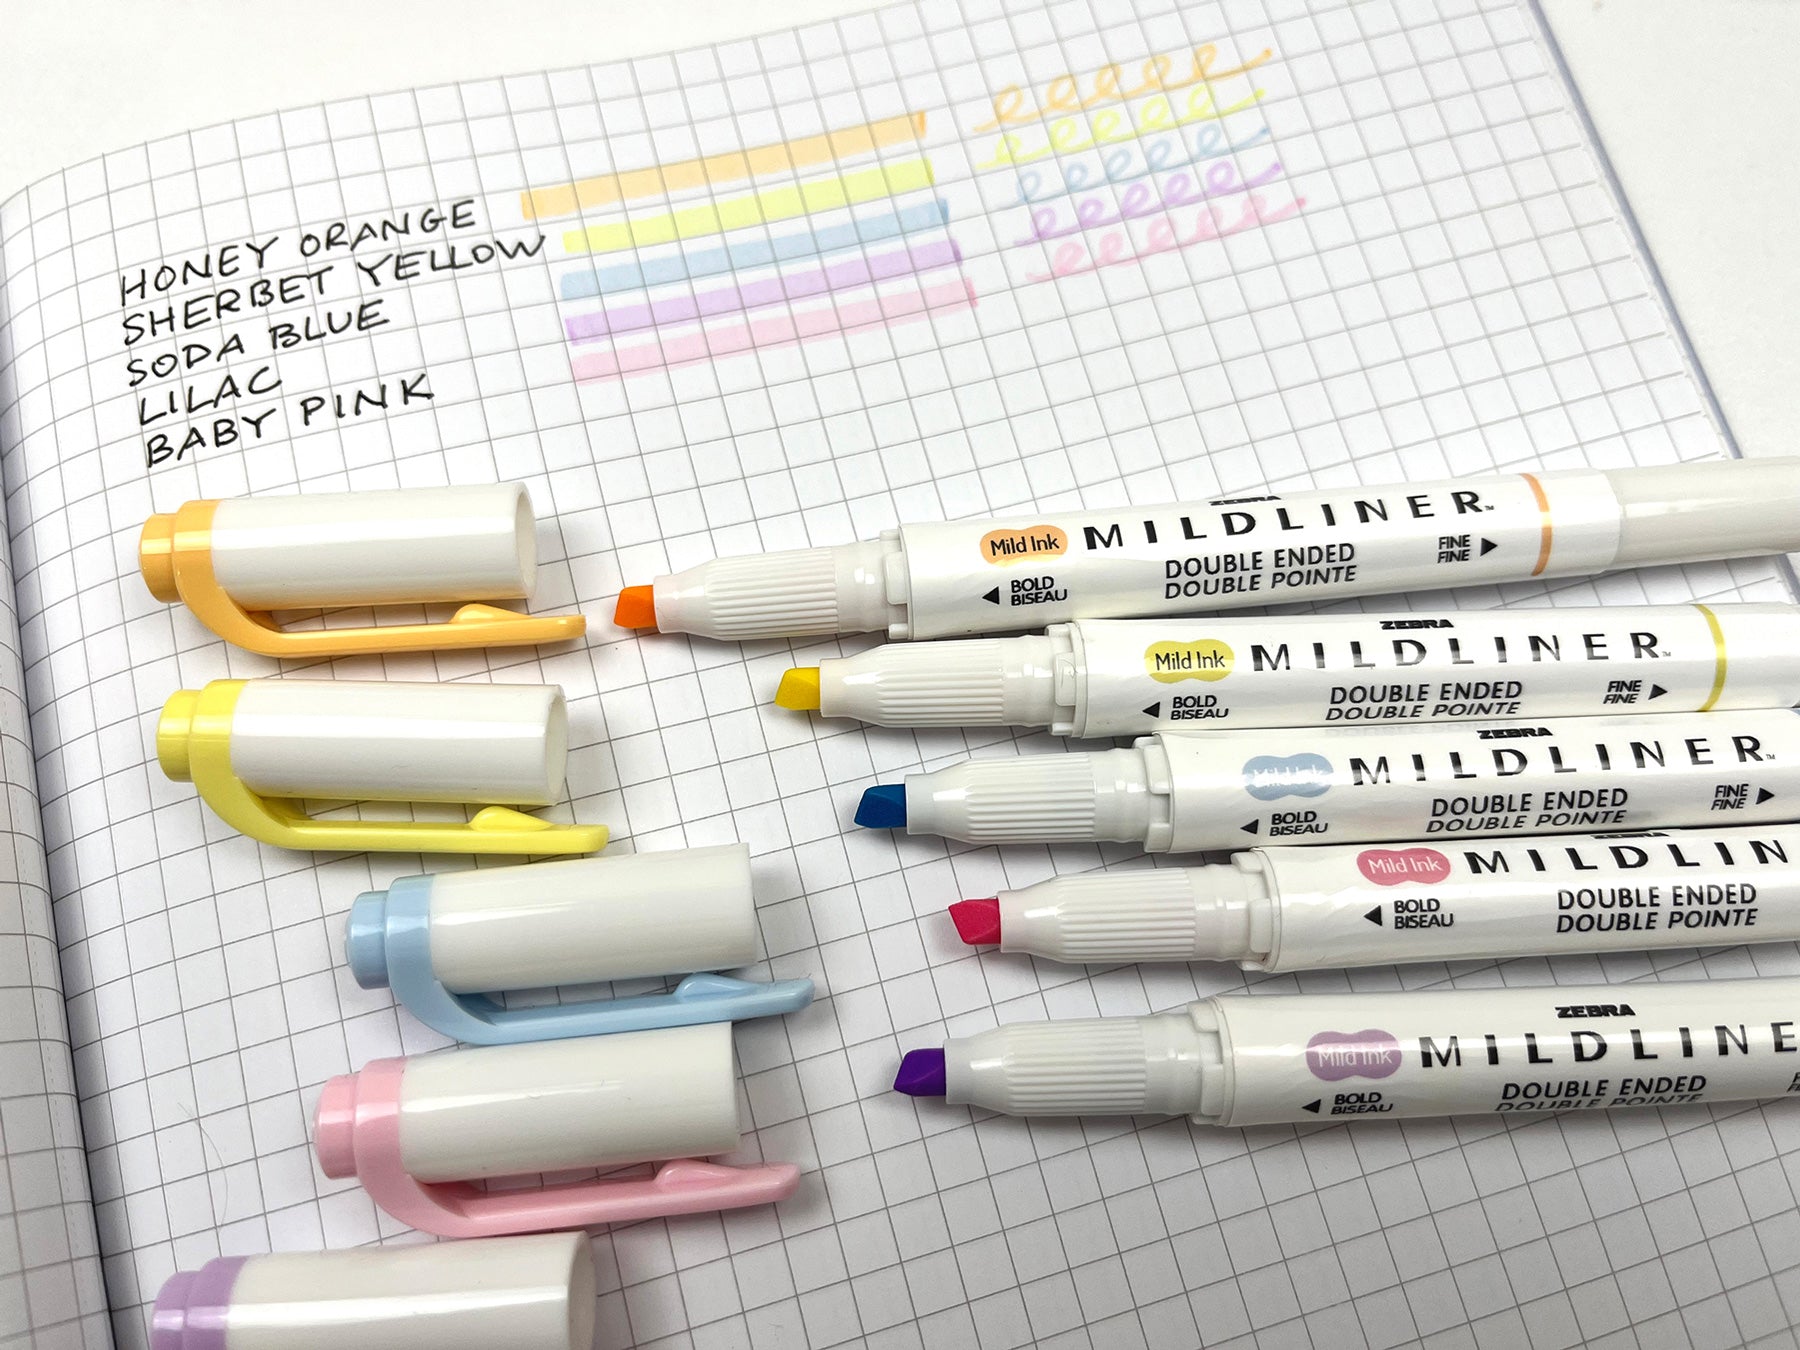 HONEY ORANGE
SHERBET YELLOW
SODA BLUE
LILAC
BABY PINK
ZEBRA
Mild Ink MILDLINER™
◀ BOLD BISEAU
DOUBLE ENDED
DOUBLE POINTE
FINE FINE ▶
ZEBRA
Mild Ink MILDLINER™
◀ BOLD BISEAU
DOUBLE ENDED
DOUBLE POINTE
FINE FINE ▶
ZEBRA
Mild Ink MILDLINER™
◀ BOLD BISEAU
DOUBLE ENDED
DOUBLE POINTE
FINE FINE ▶
ZEBRA
Mild Ink MILDLIN
◀ BOLD BISEAU
DOUBLE ENDED
DOUBLE POINTE
ZEBRA
Mild Ink MILDLINE
◀ BOLD BISEAU
DOUBLE ENDED
DOUBLE POINTE